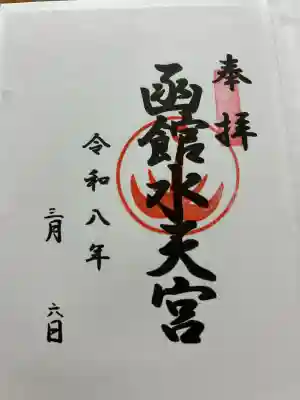 奉拝
函館水天宮
令和八年
三月 六日